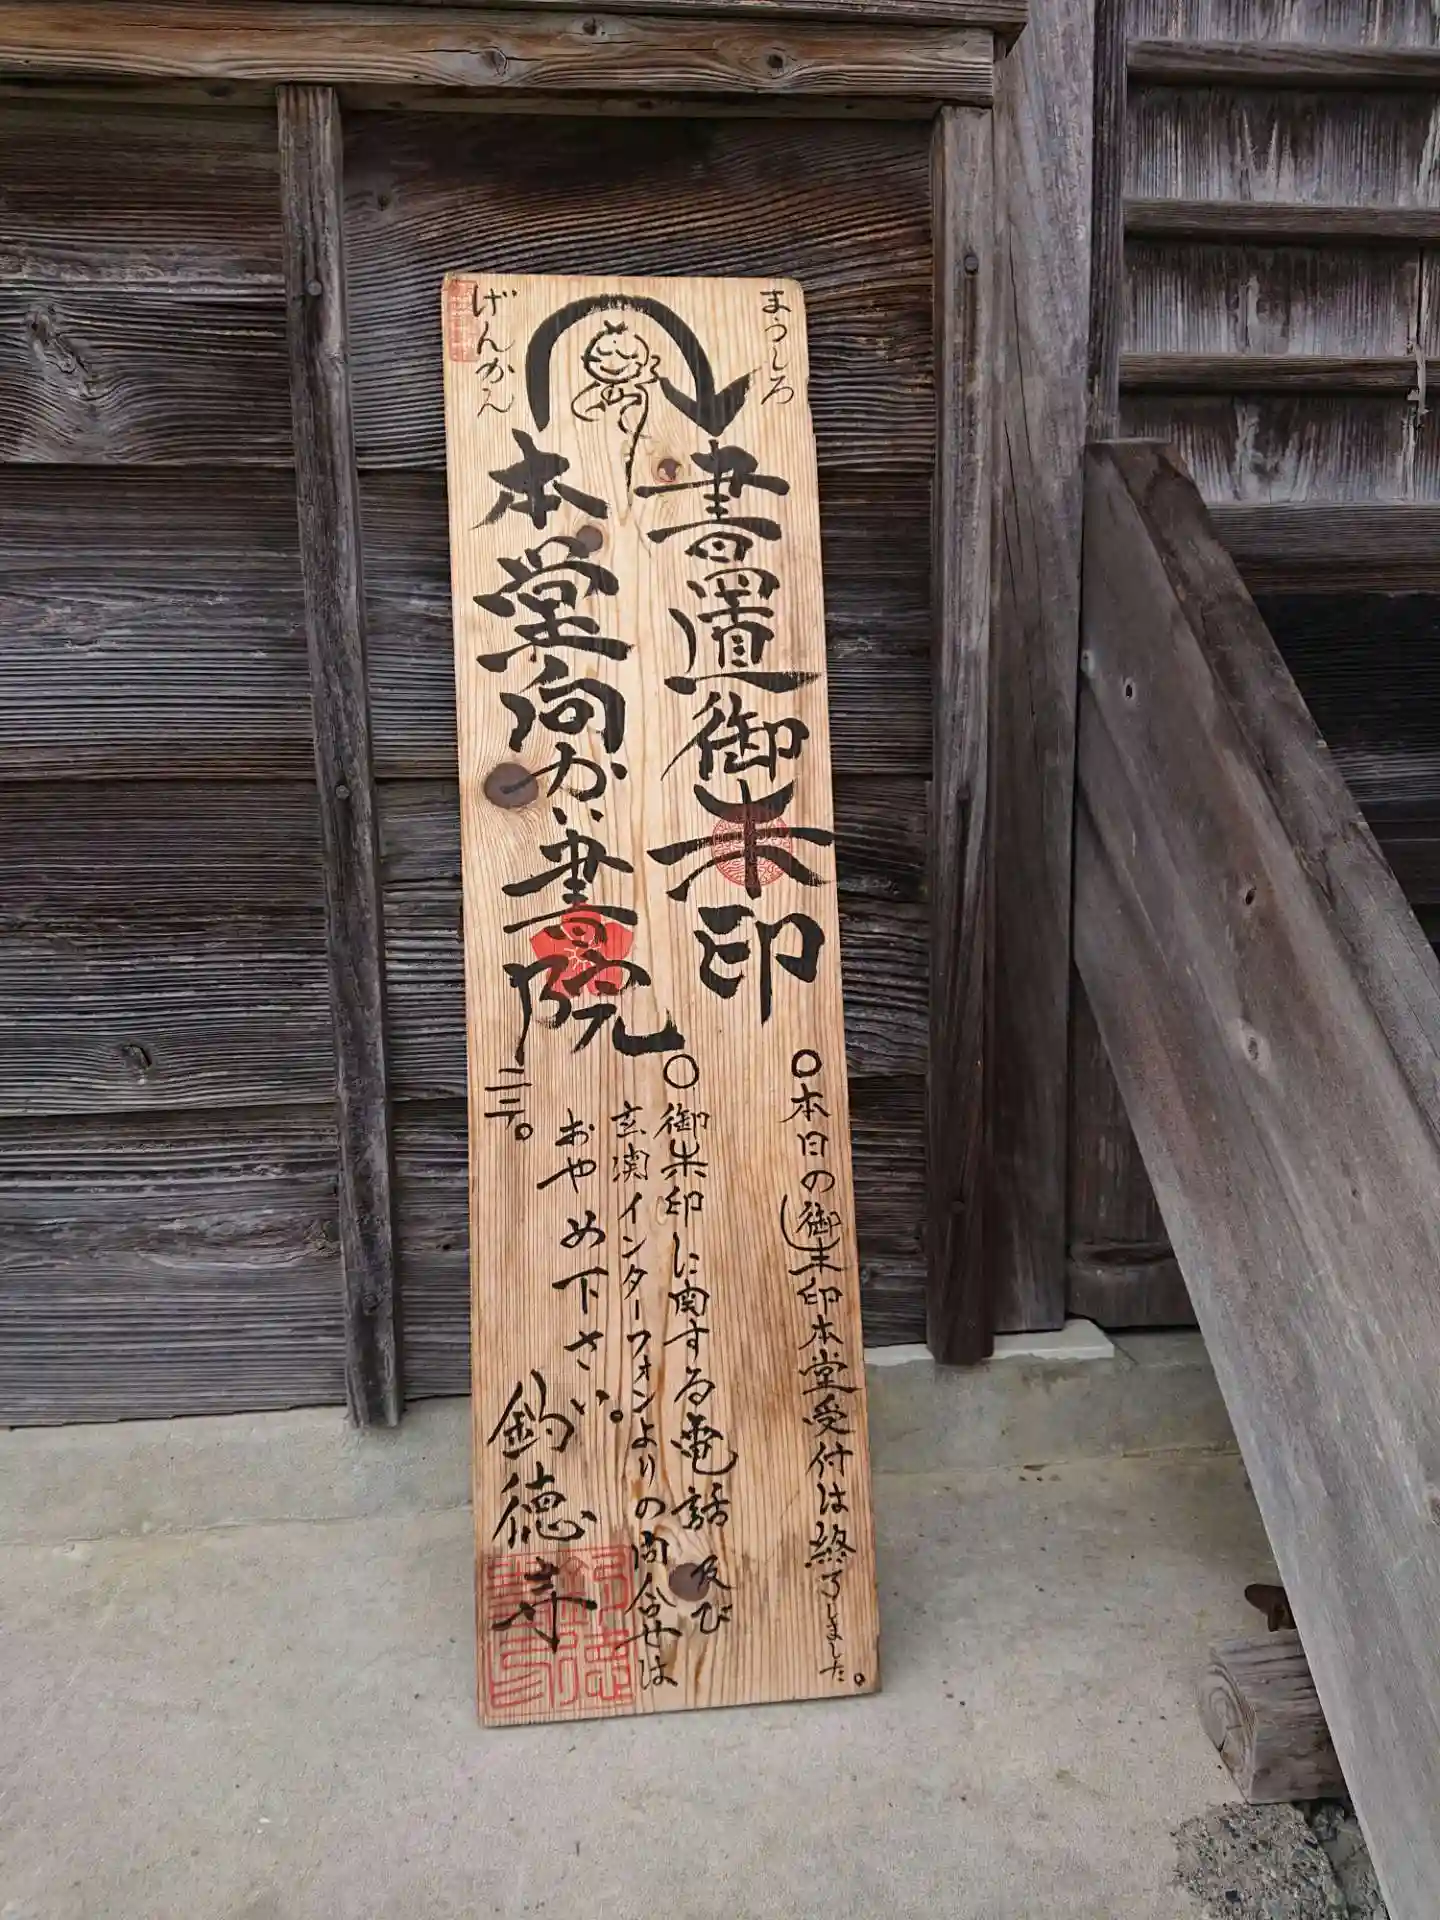 まうしろ
書置御朱印
○本日の御朱印本堂受付は終了しました。
げんかん
本堂向かい書院
○御朱印に関する電話及び
玄関インターフォンよりの問合せは
おやめ下さい。
釣徳寺